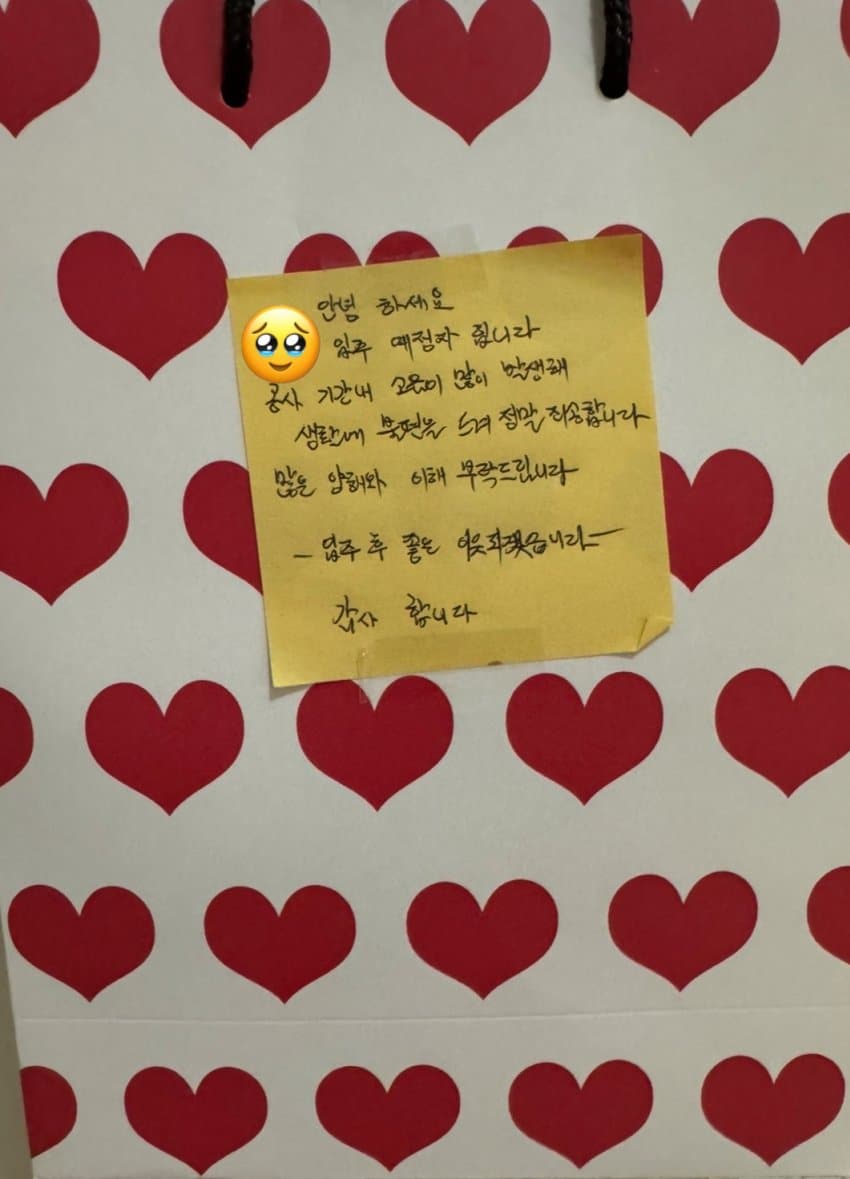 안녕 하세요
입주 예정자 입니다
공사 기간내 소음이 많이 발생해
생활에 불편을 드려 정말 죄송합니다
많은 양해와 이해 부탁드립니다
- 입주 후 좋은 이웃되겠습니다 -
감사 합니다